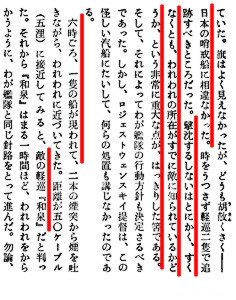 ていた。旗はよく見えなかったが、どうも胡散くさく――
日本の哨戒船に相違なかった。時をうつさず軽巡二隻で追
跡すべきところだった。撃沈するしないはとにかく、すく
なくとも、われわれの所在がすでに敵に知られているかど
うか、という非常に重大な点が、はっきりした筈である。
そして、それによってわが艦隊の行動方針も決定さるべき
であった。しかし、ロジェストウェンスキイ提督は、この
怪しい汽船にたいして、何らの処置も講じなかったのであ
る。
六時ごろ、一隻の船が現われて、二本の煙突から煙を吐
きながら、われわれに近づいてきた。距離が五〇ケーブル
（五浬）に接近してみると、敵の軽巡『和泉』だと判っ
た。それから『和泉』はまる一時間ほど、われわれをから
かうように、わが艦隊と同じ針路をとって進んだ。勿論、